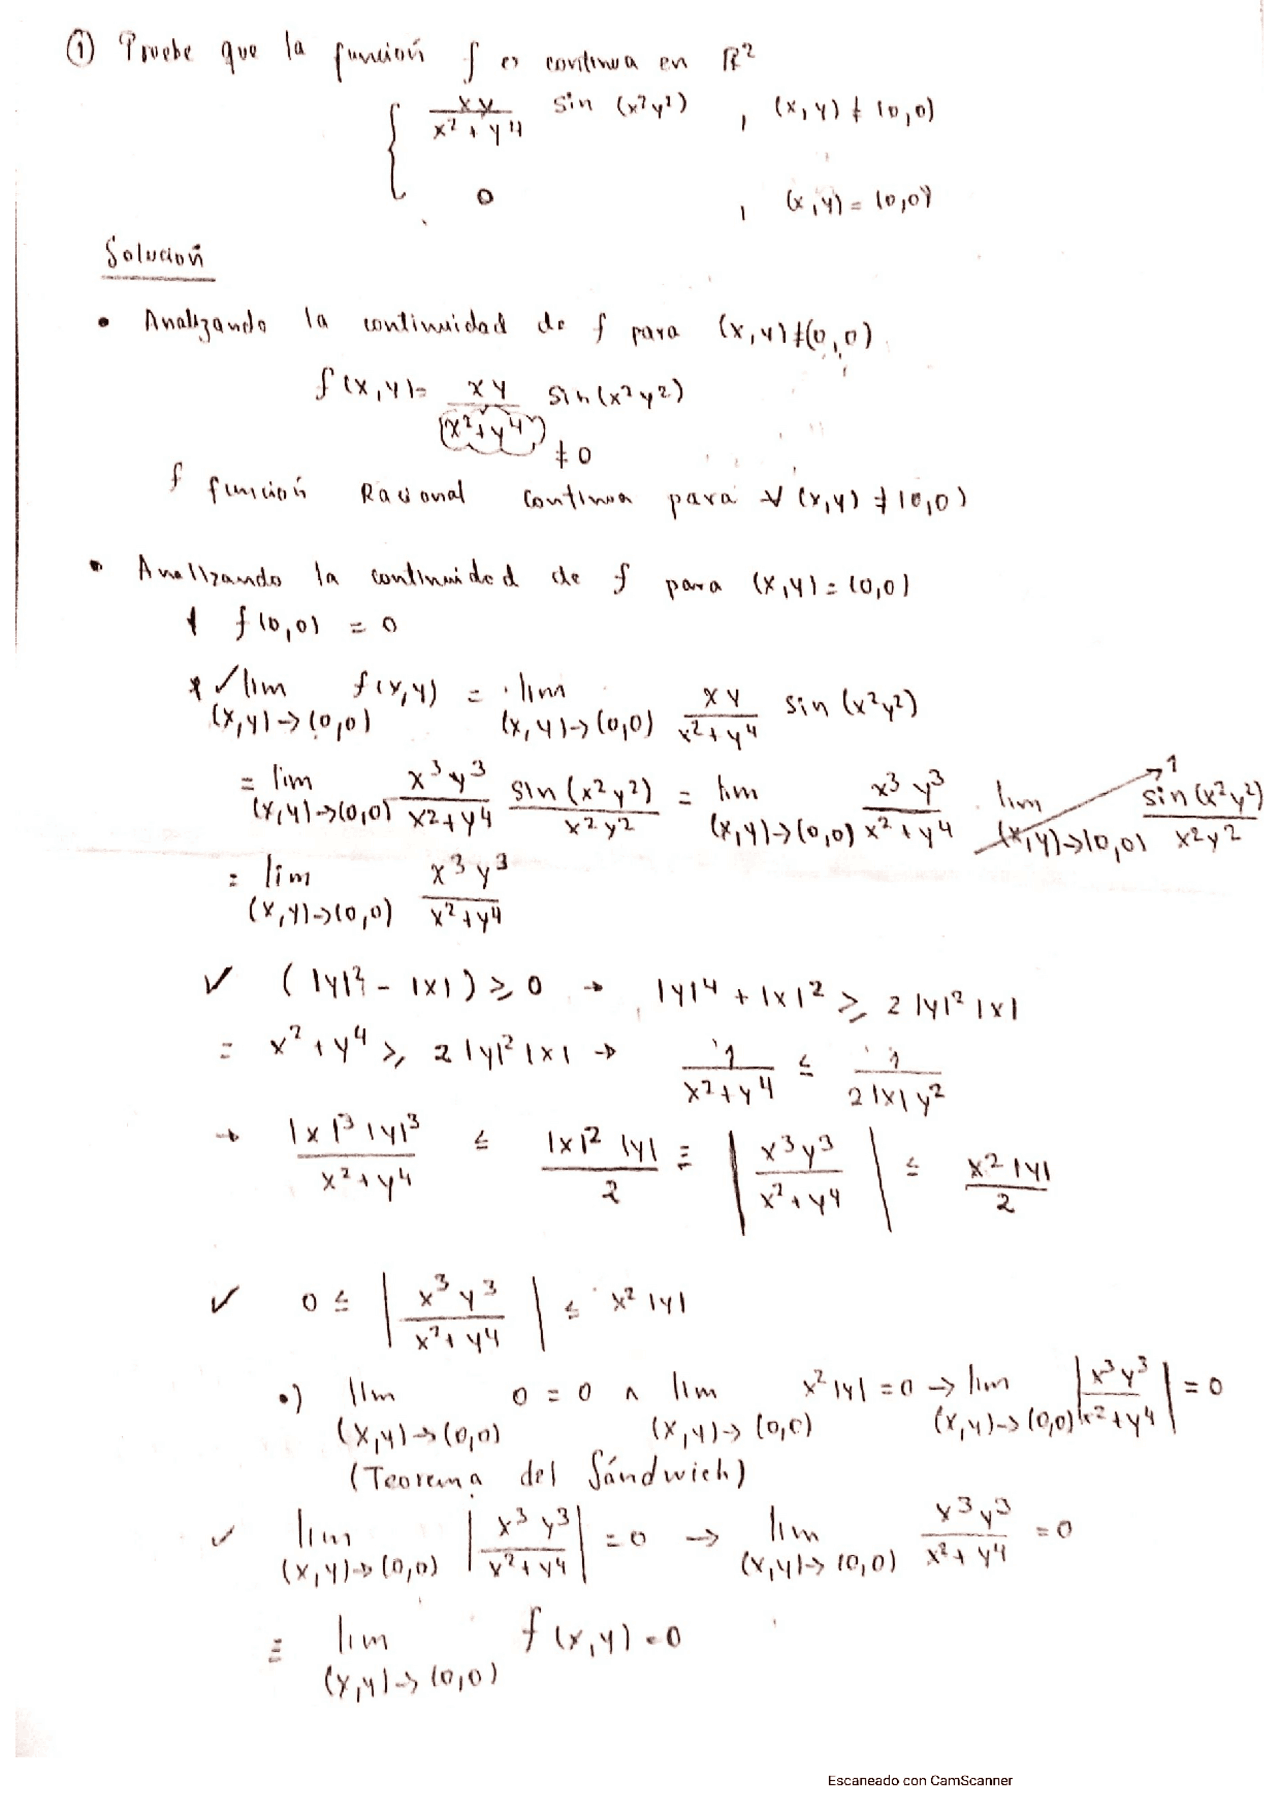 ① Pruebe que la función f es continua en ℝ²
{ xy/(x² + y⁴) sin (x²y²) , (x,y) ≠ (0,0)
0 , (x,y) = (0,0)
Solución
• Analizando la continuidad de f para (x,y)≠(0,0)
f(x,y)= xy/(x²+y⁴) sin(x²y²)
≠0
f función Racional continua para ∀ (x,y) ≠ (0,0)
• Analizando la continuidad de f para (x,y) = (0,0)
* f(0,0) = 0
* ✓ lim (x,y)→(0,0) f(x,y) = lim (x,y)→(0,0) xy/(x²+y⁴) sin (x²y²)
= lim (x,y)→(0,0) x³y³/(x²+y⁴) sin(x²y²)/(x²y²) = lim (x,y)→(0,0) x³y³/(x²+y⁴) · lim (x,y)→(0,0) sin(x²y²)/(x²y²) 1
= lim (x,y)→(0,0) x³y³/(x²+y⁴)
✓ (|y|² - |x|) ≥ 0 → |y|⁴ + |x|² ≥ 2|y|²|x|
= x² + y⁴ ≥ 2|y|²|x| → 1/(x²+y⁴) ≤ 1/(2|x|y²)
→ |x|³|y|³/(x²+y⁴) ≤ |x|²|y|/2 ≡ |x³y³/(x²+y⁴)| ≤ x²|y|/2
✓ 0 ≤ |x³y³/(x²+y⁴)| ≤ x²|y|
•) lim (x,y)→(0,0) 0 = 0 ∧ lim (x,y)→(0,0) x²|y| = 0 → lim (x,y)→(0,0) |x³y³/(x²+y⁴)| = 0
(Teorema del Sándwich)
✓ lim (x,y)→(0,0) |x³y³/(x²+y⁴)| = 0 → lim (x,y)→(0,0) x³y³/(x²+y⁴) = 0
≡ lim (x,y)→(0,0) f(x,y) = 0
Escaneado con CamScanner